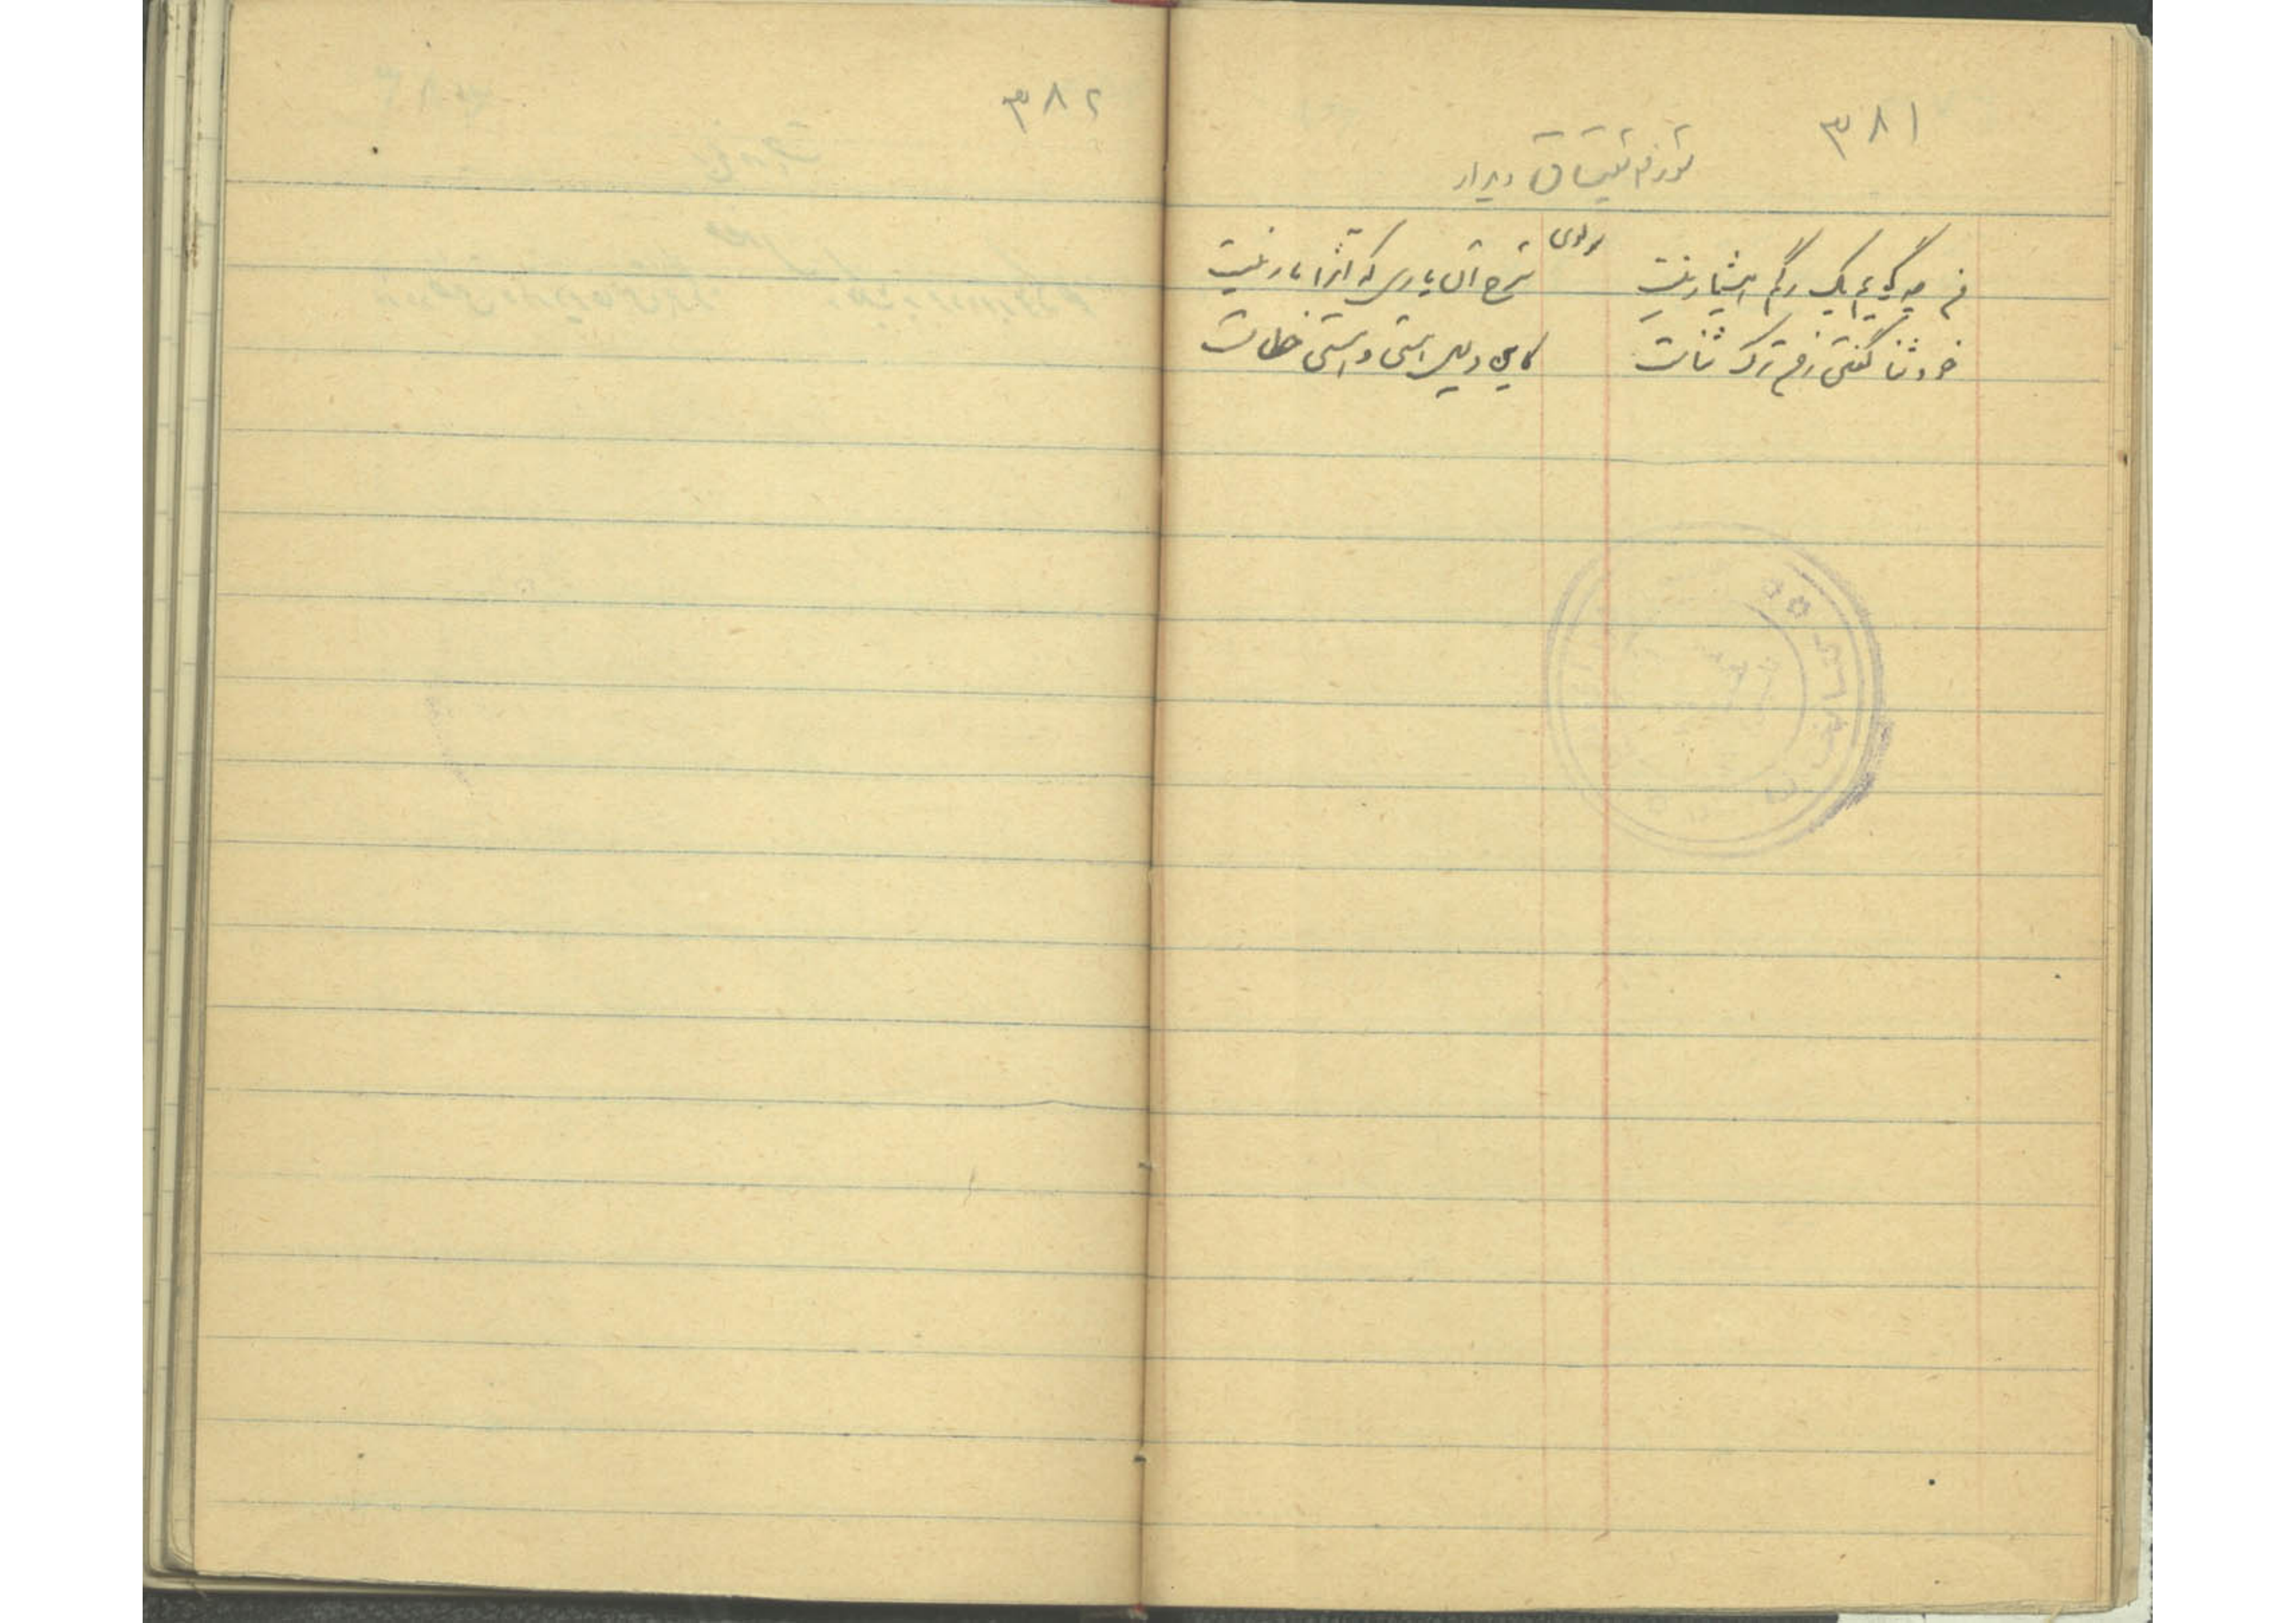 ۳۸۱
مولوی
من چه گویم یک رگم هشیار نیست شرح آن یاری که آنرا یار نیست
خود ثنا گفتن ز من ترک ثناست کاین دلیل هستی و هستی خطاست
۳۸۲